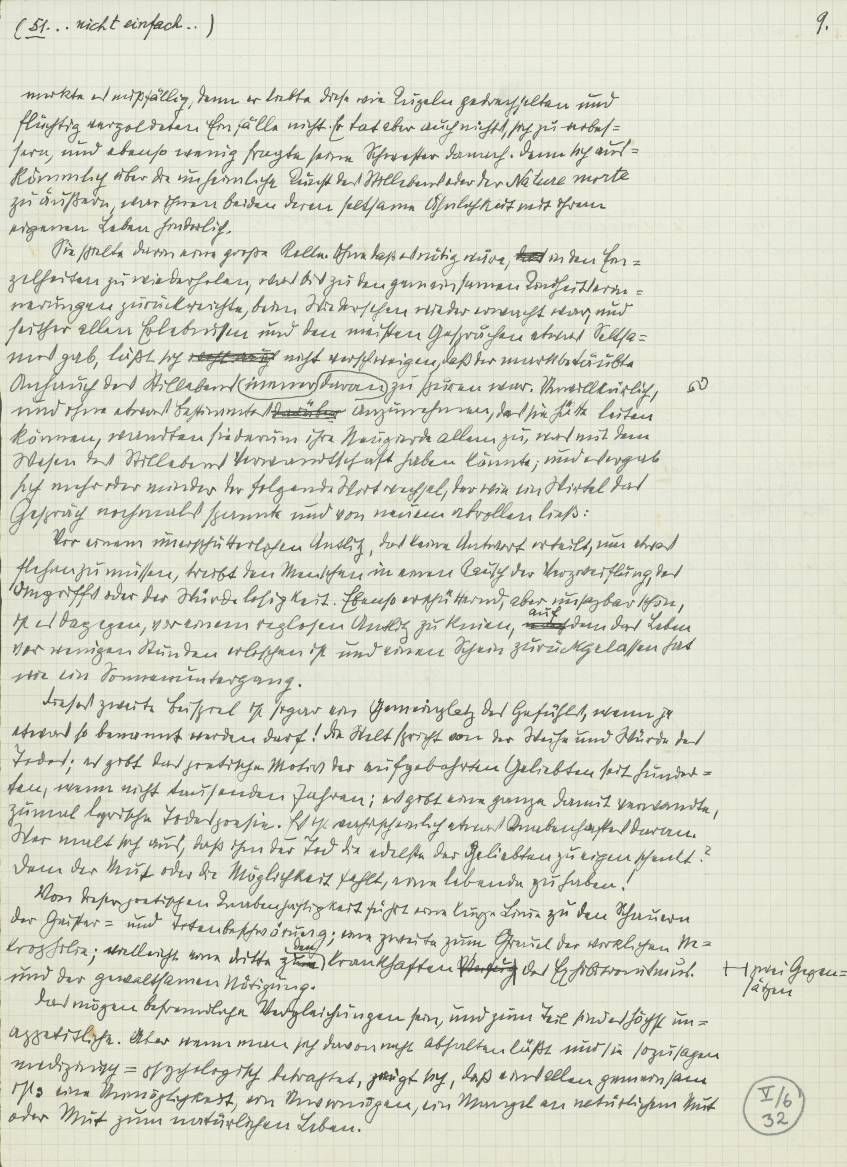 (51... nicht einfach..) 9.
merkte es mißfällig, denn er liebte diese wie Kugeln gedrechselten und
flüchtig vergoldeten Einfälle nicht. Er tat aber auch nichts, sich zu verbes=
sern, und ebenso wenig fragte seine Schwester danach. Denn sich aus=
kömmlich über die unheimliche Kunst des Stillebens oder der Nature morte
zu äußern, war ihnen beiden deren seltsame Ähnlichkeit mit ihrem
eigenen Leben hinderlich.
Sie spielte darin eine große Rolle. Ohne daß es nötig wäre, das in den Ein=
zelheiten zu wiederholen, was bis zu den gemeinsamen Kindheitserin=
nerungen zurückreichte, beim Wiedersehen wieder erwacht war, und
seither allen Erlebnissen und den meisten Gesprächen etwas Seltsa=
mes gab, läßt sich nicht verschweigen, daß der markbetäubte
Anhauch des Stillebens immer daran zu spüren war. Unwillkürlich,
und ohne etwas Bestimmtes darüber anzunehmen, das sie hätte leiten
können, wandten sie darum ihre Neugierde allem zu, was mit dem
Wesen des Stillebens Verwandtschaft haben könnte; und es ergab
sich mehr oder minder der folgende Wortwechsel, der wie ein Wirtel das
Gespräch nochmals spannte und von neuem abrollen ließ:
Vor einem unerschütterlichen Antlitz, das keine Antwort erteilt, um etwas
flehen zu müssen, treibt den Menschen in einen Rausch der Verzweiflung, des
Angriffs oder der Würdelosigkeit. Ebenso erschütternd, aber unsagbar schön,
ist es dagegen, vor einem reglosen Antlitz zu knien, auf dem das Leben
vor wenigen Stunden erloschen ist und einen Schein zurückgelassen hat
wie ein Sonnenuntergang.
Dieses zweite Beispiel ist sogar ein Gemeinplatz des Gefühls, wenn je
etwas so benannt werden darf! Die Welt spricht von der Weihe und Würde des
Todes; es gibt das poetische Motiv der aufgebahrten Geliebten seit hunder=
ten, wenn nicht tausenden Jahren; es gibt eine ganze damit verwandte,
zumal lyrische Todespoesie. Es ist wahrscheinlich etwas Knabenhaftes daran.
Wer malt sich aus, daß ihm der Tod die edelste der Geliebten zu eigen schenkt?
Dem der Mut oder die Möglichkeit fehlt, eine lebende zu haben!
Von dieser poetischen Knabenhaftigkeit führt eine kurze Linie zu den Schauern
der Geister= und Totenbeschwörung; eine zweite zum Greuel der wirklichen Ne=
krophilie; vielleicht eine dritte zu den krankhaften des Exhibitionismus
zwei Gegen=
sätzen
und der gewaltsamen Nötigung.
Das mögen befremdliche Vergleichungen sein, und zum Teil sind es höchst un=
appetitliche. Aber wenn man sich davon nicht abhalten läßt und sie sozusagen
medizinisch=psychologisch betrachtet, zeigt sich, daß eins allen gemeinsam
ist: eine Unmöglichkeit, ein Unvermögen, ein Mangel an natürlichem Mut
oder Mut zum natürlichen Leben.
V/6
32